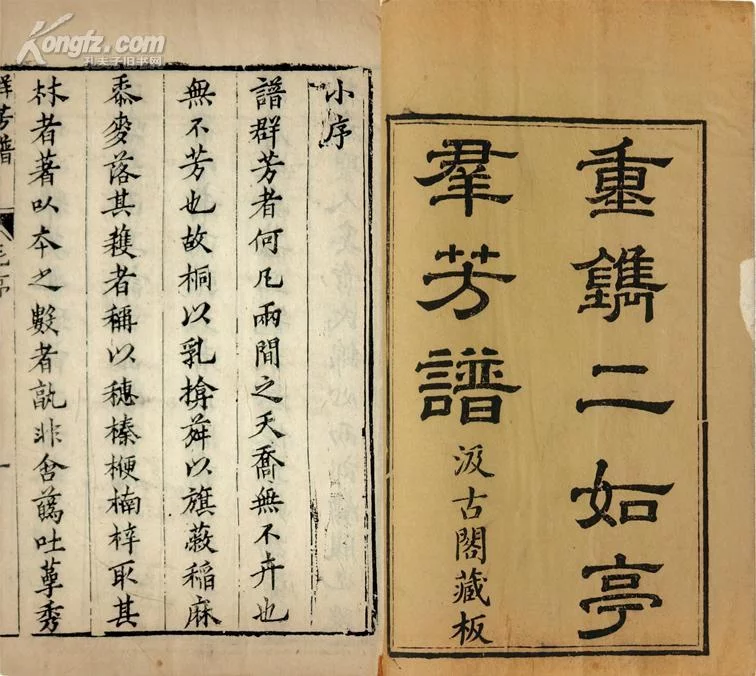 Kongfz.com
孔夫子旧书网
重鐫二如亭
羣芳譜
汲古閣藏板
小序
譜群芳者何凡兩間之夭喬無不卉也
無不芳也故桐以乳以旗稲麻
黍麥落其穫者稱以穗榛楩楠梓取其
材者著以本之數者孰非含蘤吐萼秀
群芳譜